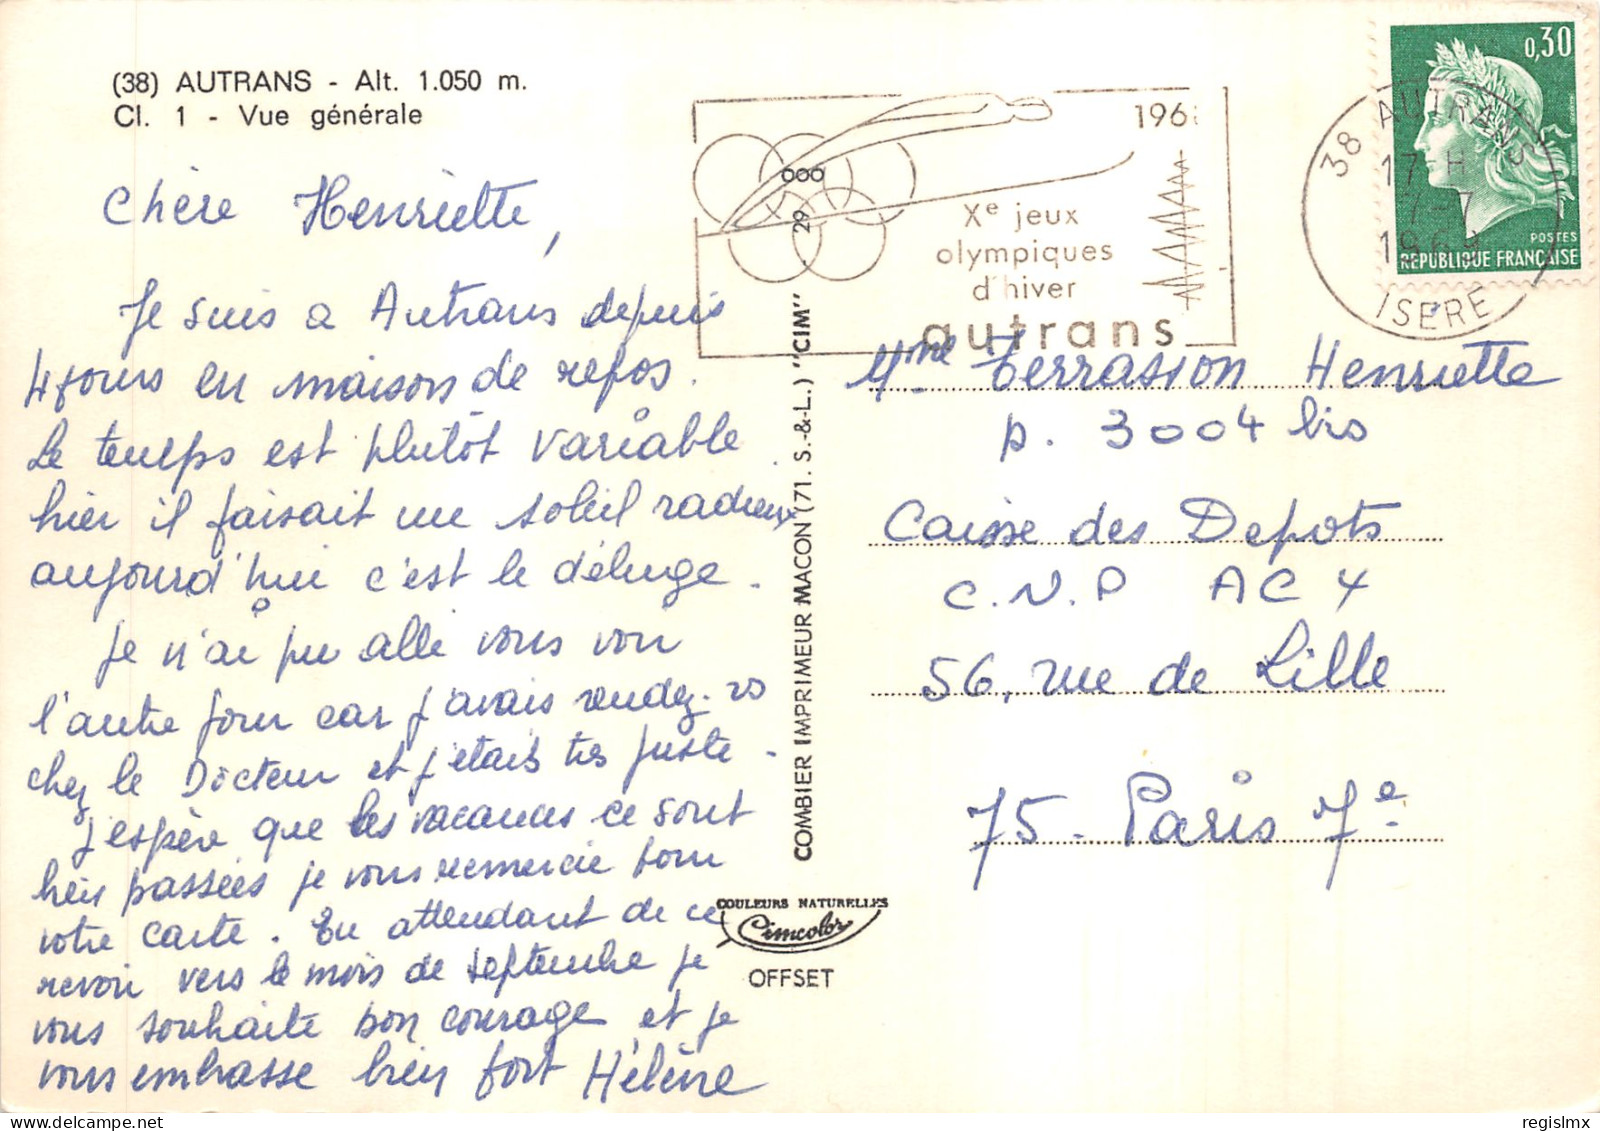 (38) AUTRANS - Alt. 1.050 m.
Cl. 1 - Vue générale
Chère Henriette,
Je suis a Autrans depuis
4 jours en maison de repos.
Le temps est plutôt variable.
hier il faisait un soleil radieux
aujourd'hui c'est le déluge.
Je n'ai pu allé vous voir
l'autre jour car j'avais rendez-vs
chez le Docteur et j'étais très juste.
J'espère que les vacances ce sont
bien passées je vous remercie pour
votre carte. En attendant de ce
revoir vers le mois de septembre je
vous souhaite bon courage et je
vous embrasse bien fort Hélène
COMBIER IMPRIMEUR MACON (71. S.-&-L.) "CIM"
29
COULEURS NATURELLES
Cimcolor
OFFSET
196
Xe jeux
olympiques
d'hiver
autrans
38 AUTRANS
17-H
7-7
1969
ISERE
0,30
POSTES
REPUBLIQUE FRANÇAISE
Mme Terrasson Henriette
p. 3004 bis
Caisse des Depots
C.N.P AC 4
56, rue de Lille
75 - Paris 7e
regislmx